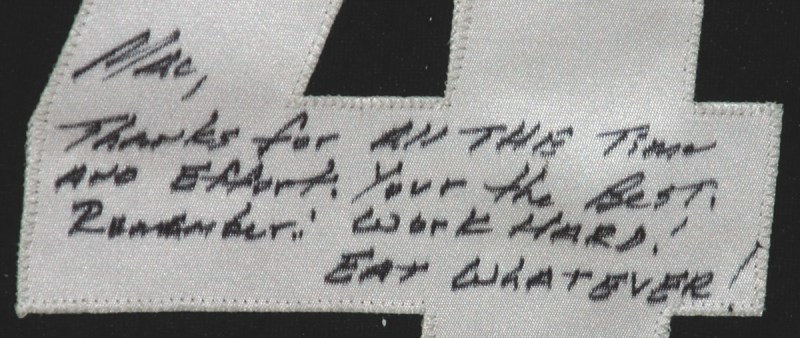 Mac,
Thanks for All THE Time
AND Effort. Your the Best.
Remember! Work HARD!
EAT WHATEVER!